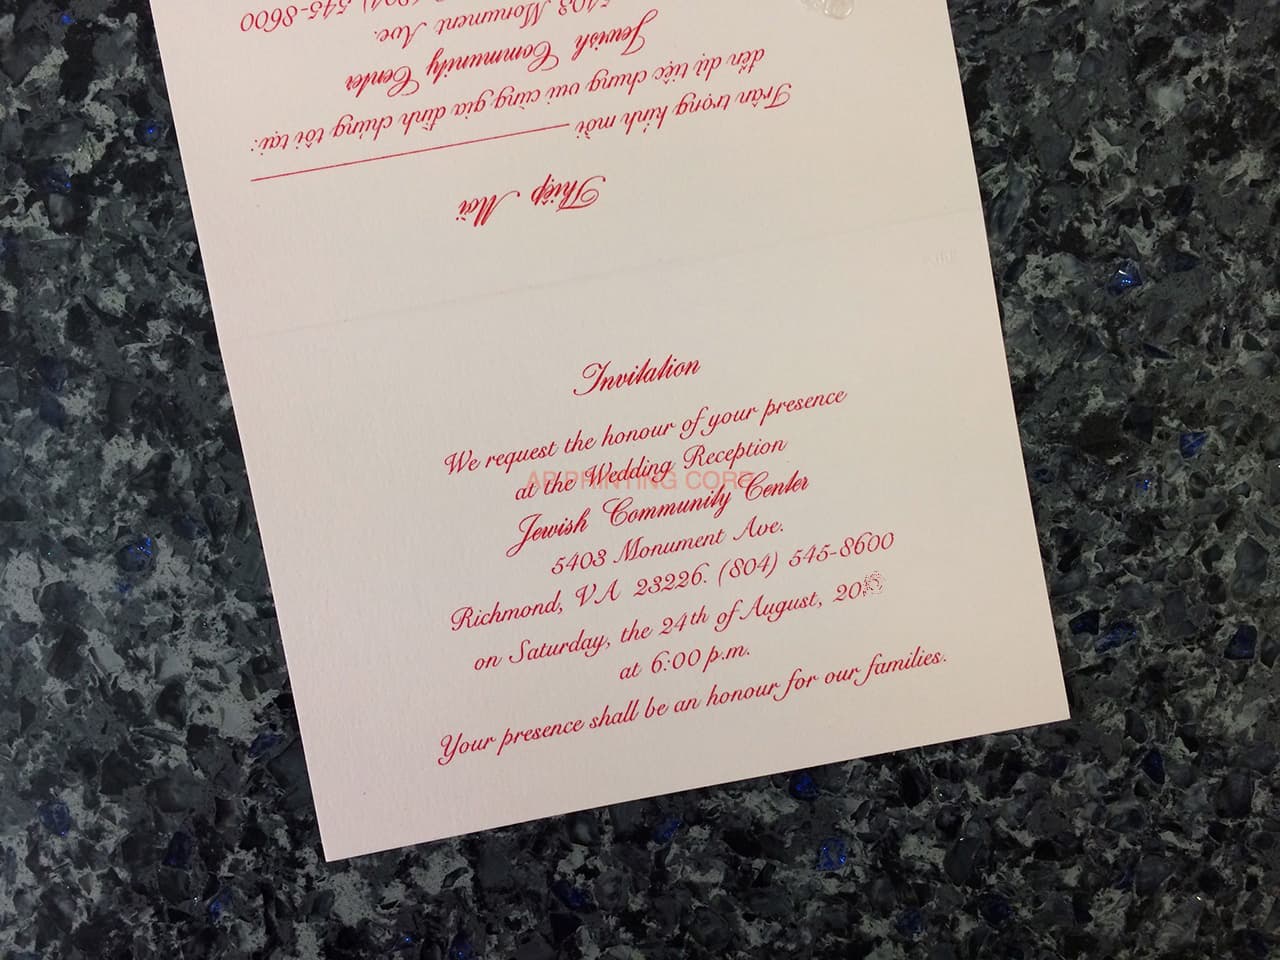 Invitation
We request the honour of your presence
at the Wedding Reception
Jewish Community Center
5403 Monument Ave.
Richmond, VA 23226. (804) 545-8600
on Saturday, the 24th of August, 20
at 6:00 p.m.
Your presence shall be an honour for our families.
AP PRINTING CORP
Thiệp Mời
Trân trọng kính mời
đến dự tiệc chung vui cùng gia đình chúng tôi tại:
Jewish Community Center
5403 Monument Ave.
(804) 545-8600